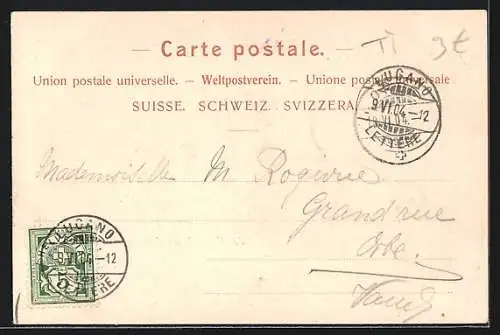 TI 3€
— Carte postale. —
Union postale universelle. — Weltpostverein. — Unione postale universale
SUISSE. SCHWEIZ. SVIZZERA.
LUGANO
9 VI 04.–12
LETTERE
Mademoiselle M Rogivue
Grand rue
Orbe
Vaud
LUGANO
9 VI 04.–12
LETTERE
5